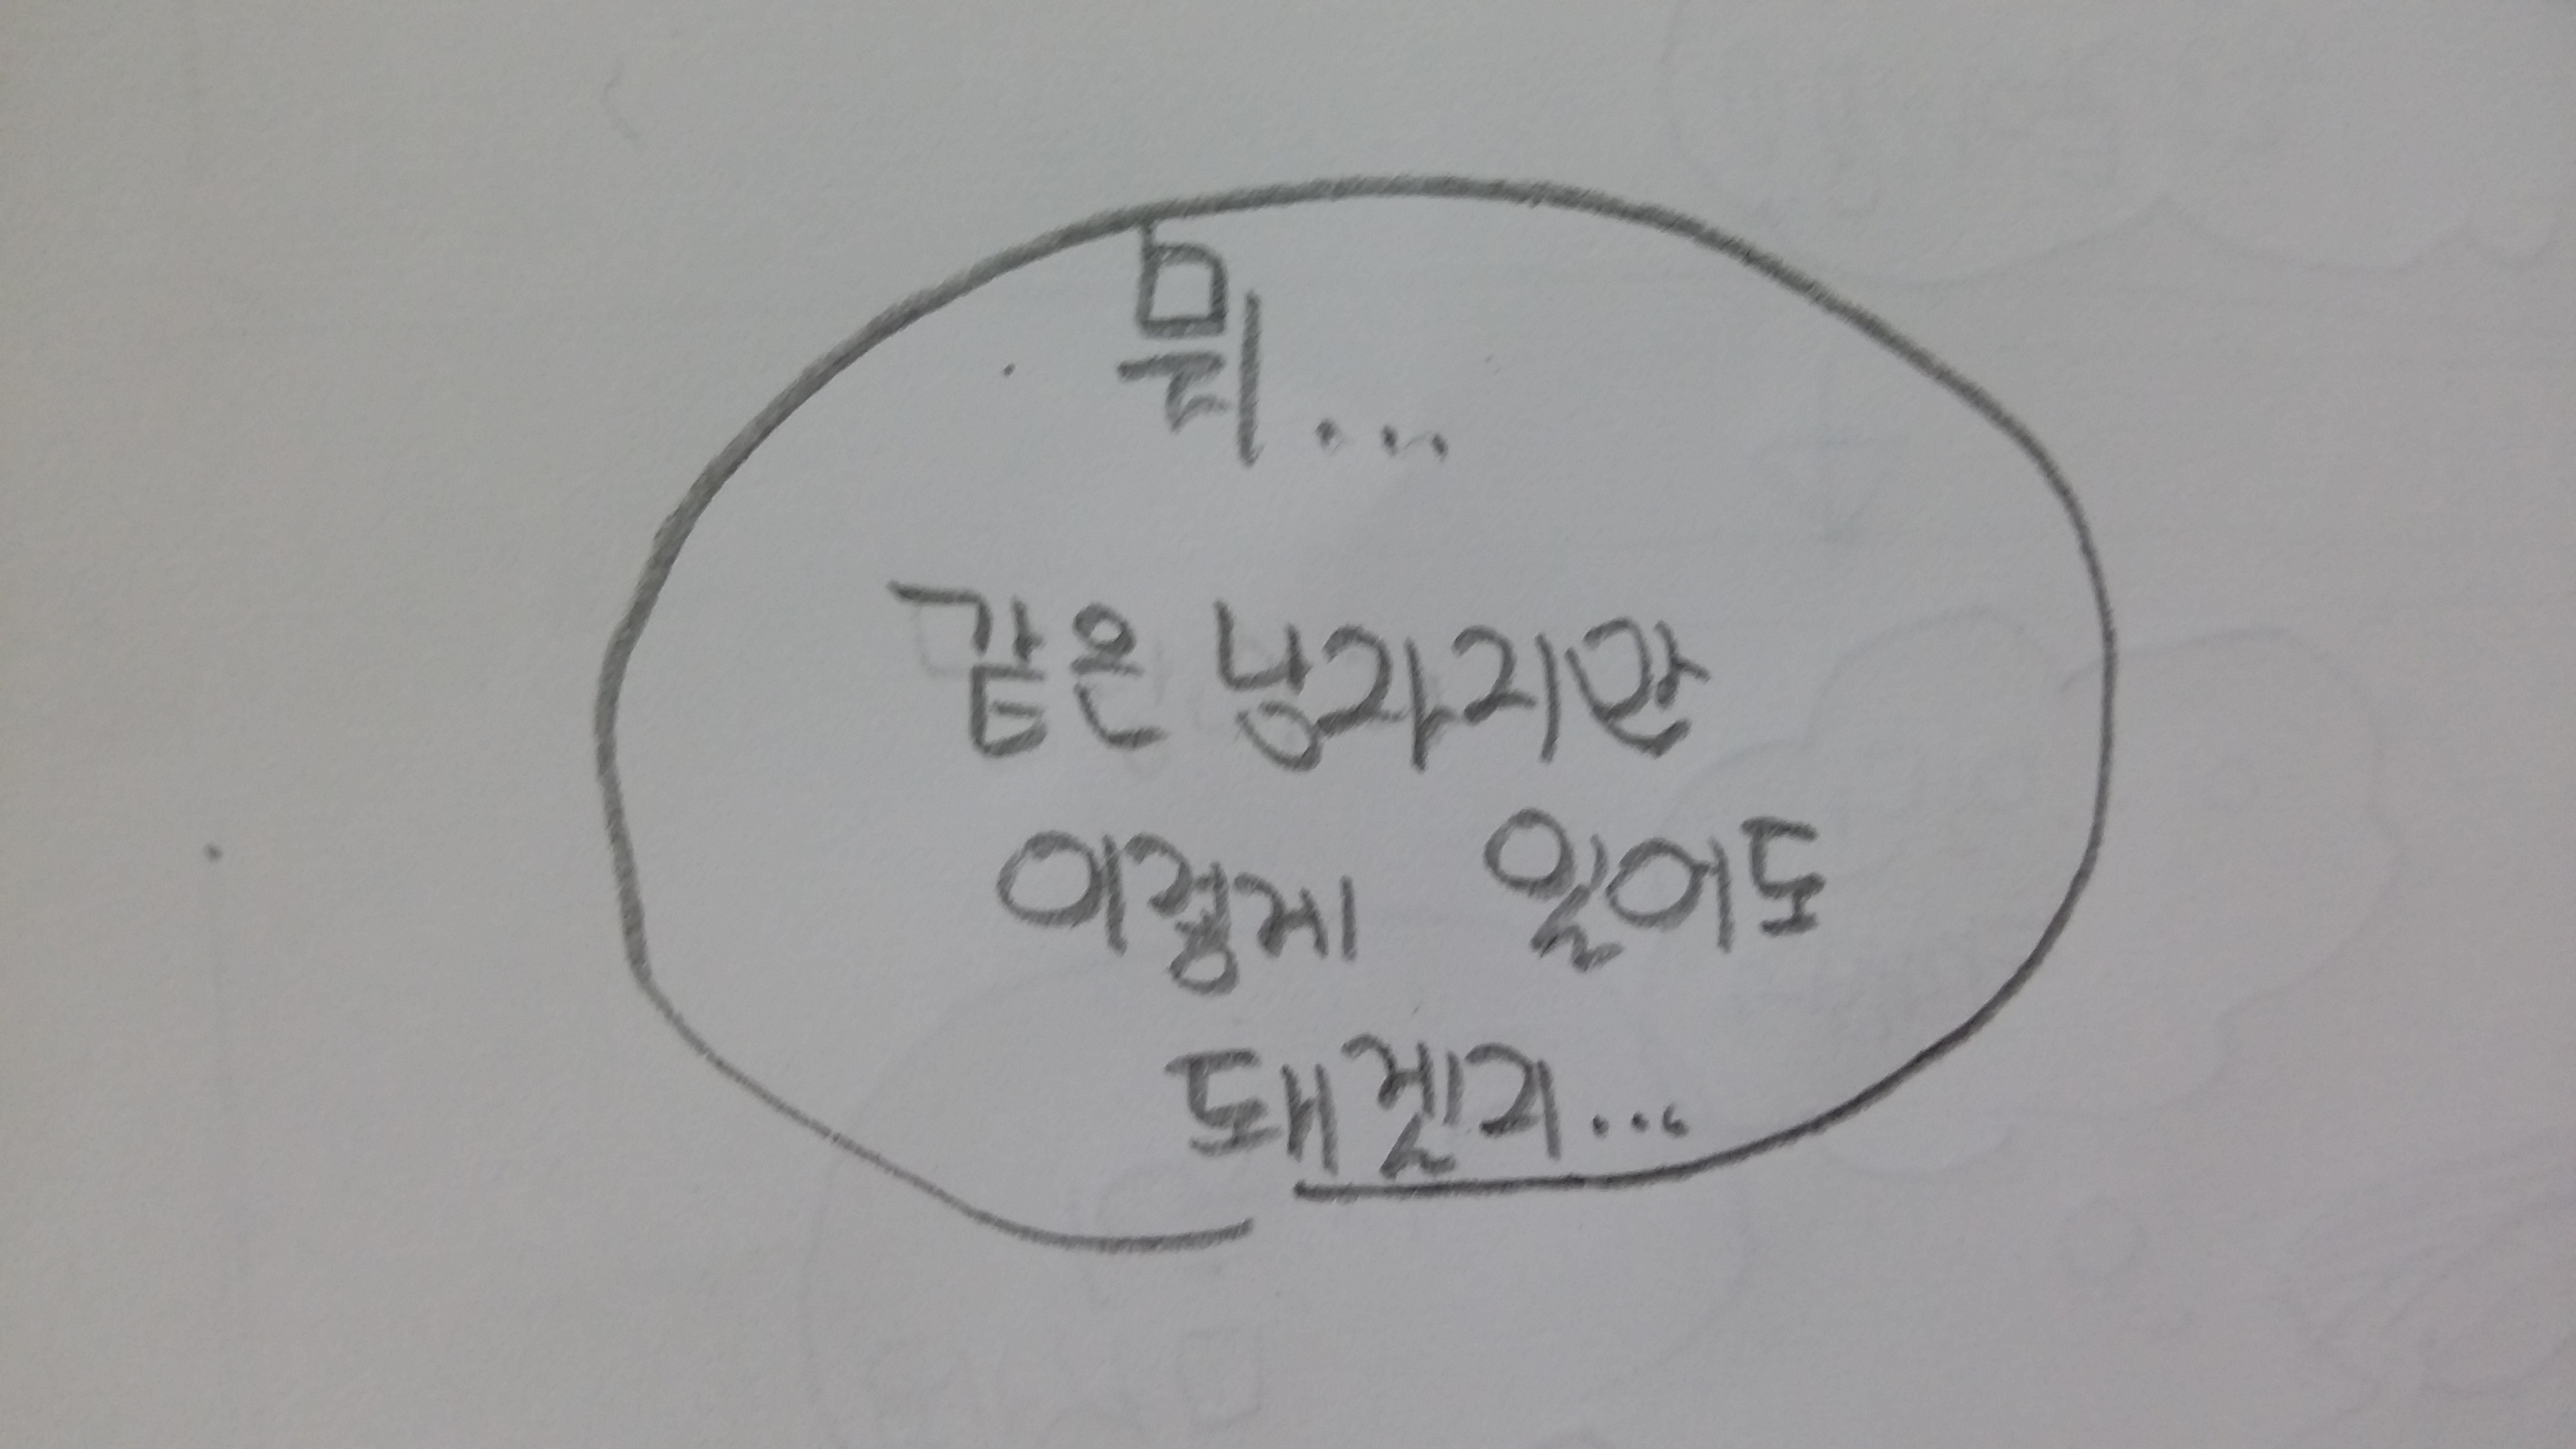 뭐...
같은 남자지만
이렇게 있어도
돼겠지...